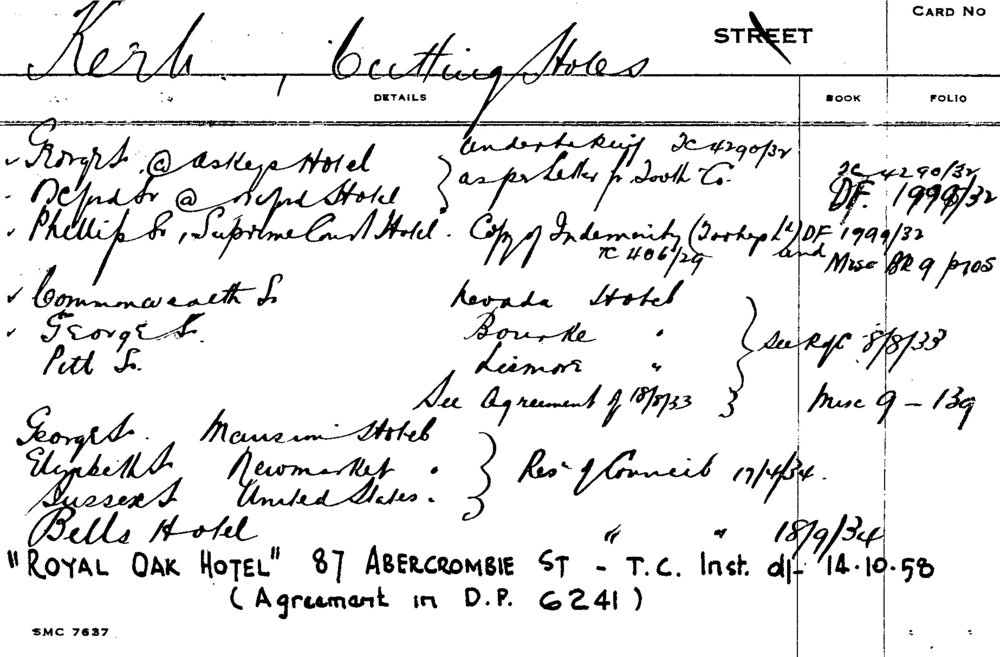 CARD NO
Kerb, Cutting Holes STREET
DETAILS BOOK FOLIO
George St. @ Askeys Hotel } Undertaking TC 4290/32 TC 4290/32
Oxford St @ Oxford Hotel } as per Letter fr Tooth Co. DF. 1999/32
Phillip St, Supreme Court Hotel. Copy of Indemnity (Tooheys Ld) DF 1999/32
TC 406/29 and Misc BR 9 p105
Commonwealth St Nevada Hotel
George St. Bourke " } See R of C 8/8/33
Pitt St. Lismore "
See Agreement of 18/8/33 } Misc 9 - 139
George St. Mansion Hotel
Elizabeth St Newmarket " } Resn of Council 17/4/34.
Sussex St United States "
Bells Hotel " " 18/9/34
"ROYAL OAK HOTEL" 87 ABERCROMBIE ST - T.C. Inst. d/- 14.10.58
(Agreement in D.P. 6241)
SMC 7637